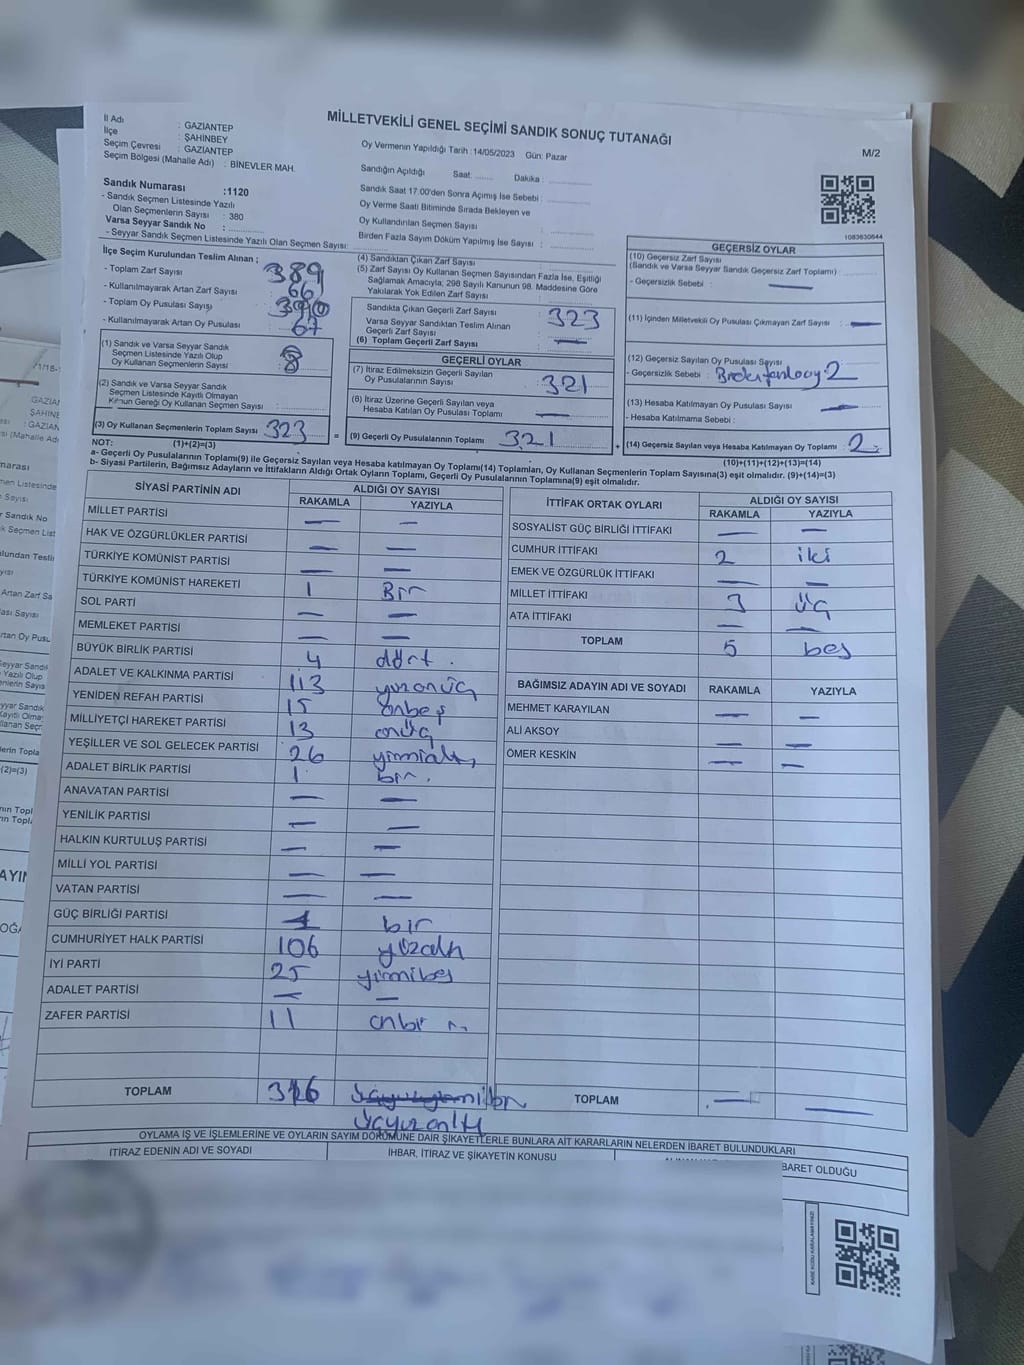 MİLLETVEKİLİ GENEL SEÇİMİ SANDIK SONUÇ TUTANAĞI
M/2
İl Adı : GAZİANTEP
İlçe : ŞAHİNBEY
Seçim Çevresi : GAZİANTEP
Seçim Bölgesi (Mahalle Adı) : BİNEVLER MAH.
Oy Vermenin Yapıldığı Tarih :14/05/2023 Gün: Pazar
Sandığın Açıldığı Saat: ........ Dakika : ..............
Sandık Saat 17:00'den Sonra Açımış İse Sebebi : ..............
Oy Verme Saati Bitiminde Sırada Bekleyen ve
Oy Kullandırılan Seçmen Sayısı : ..............
Birden Fazla Sayım Döküm Yapılmış İse Sayısı : ..............
Sandık Numarası :1120
- Sandık Seçmen Listesinde Yazılı
Olan Seçmenlerin Sayısı : 380
Varsa Seyyar Sandık No : ........
- Seyyar Sandık Seçmen Listesinde Yazılı Olan Seçmen Sayısı:
1083630644
İlçe Seçim Kurulundan Teslim Alınan ;
- Toplam Zarf Sayısı 389
- Kullanılmayarak Artan Zarf Sayısı 66
- Toplam Oy Pusulası Sayısı 390
- Kullanılmayarak Artan Oy Pusulası 67
(1) Sandık ve Varsa Seyyar Sandık
Seçmen Listesinde Yazılı Olup
Oy Kullanan Seçmenlerin Sayısı : 8
(2) Sandık ve Varsa Seyyar Sandık
Seçmen Listesinde Kayıtlı Olmayan
Kanun Gereği Oy Kullanan Seçmen Sayısı :
(3) Oy Kullanan Seçmenlerin Toplam Sayısı 323
(1)+(2)=(3)
(4) Sandıktan Çıkan Zarf Sayısı
(5) Zarf Sayısı Oy Kullanan Seçmen Sayısından Fazla İse, Eşitliği
Sağlamak Amacıyla; 298 Sayılı Kanunun 98. Maddesine Göre
Yakılarak Yok Edilen Zarf Sayısı
Sandıkta Çıkan Geçerli Zarf Sayısı : 323
Varsa Seyyar Sandıktan Teslim Alınan
Geçerli Zarf Sayısı : —
(6) Toplam Geçerli Zarf Sayısı
GEÇERLİ OYLAR
(7) İtiraz Edilmeksizin Geçerli Sayılan
Oy Pusulalarının Sayısı : 321
(8) İtiraz Üzerine Geçerli Sayılan veya
Hesaba Katılan Oy Pusulası Toplamı : —
= (9) Geçerli Oy Pusulalarının Toplamı 321 +
GEÇERSİZ OYLAR
(10) Geçersiz Zarf Sayısı
(Sandık ve Varsa Seyyar Sandık Geçersiz Zarf Toplamı) :
- Geçersizlik Sebebi : —
(11) İçinden Milletvekili Oy Pusulası Çıkmayan Zarf Sayısı : —
(12) Geçersiz Sayılan Oy Pusulası Sayısı 2
- Geçersizlik Sebebi :
(13) Hesaba Katılmayan Oy Pusulası Sayısı : —
- Hesaba Katılmama Sebebi :
(14) Geçersiz Sayılan veya Hesaba Katılmayan Oy Toplamı : 2
(10)+(11)+(12)+(13)=(14)
NOT:
a- Geçerli Oy Pusulalarının Toplamı(9) ile Geçersiz Sayılan veya Hesaba katılmayan Oy Toplamı(14) Toplamları, Oy Kullanan Seçmenlerin Toplam Sayısına(3) eşit olmalıdır. (9)+(14)=(3)
b- Siyasi Partilerin, Bağımsız Adayların ve İttifakların Aldığı Ortak Oyların Toplamı, Geçerli Oy Pusulalarının Toplamına(9) eşit olmalıdır.
SİYASİ PARTİNİN ADI ALDIĞI OY SAYISI
RAKAMLA YAZIYLA
MİLLET PARTİSİ — —
HAK VE ÖZGÜRLÜKLER PARTİSİ — —
TÜRKİYE KOMÜNİST PARTİSİ — —
TÜRKİYE KOMÜNİST HAREKETİ 1 Bir
SOL PARTİ — —
MEMLEKET PARTİSİ — —
BÜYÜK BİRLİK PARTİSİ 4 dört .
ADALET VE KALKINMA PARTİSİ 113 yüzonüç
YENİDEN REFAH PARTİSİ 15 onbeş
MİLLİYETÇİ HAREKET PARTİSİ 13 onüç
YEŞİLLER VE SOL GELECEK PARTİSİ 26 yirmialtı
ADALET BİRLİK PARTİSİ 1 bir.
ANAVATAN PARTİSİ — —
YENİLİK PARTİSİ — —
HALKIN KURTULUŞ PARTİSİ — —
MİLLİ YOL PARTİSİ — —
VATAN PARTİSİ — —
GÜÇ BİRLİĞİ PARTİSİ 1 bir
CUMHURİYET HALK PARTİSİ 106 yüzaltı
İYİ PARTİ 25 yirmibeş
ADALET PARTİSİ — —
ZAFER PARTİSİ 11 onbir
TOPLAM 316
üçyüzonaltı
İTTİFAK ORTAK OYLARI ALDIĞI OY SAYISI
RAKAMLA YAZIYLA
SOSYALİST GÜÇ BİRLİĞİ İTTİFAKI — —
CUMHUR İTTİFAKI 2 iki
EMEK VE ÖZGÜRLÜK İTTİFAKI — —
MİLLET İTTİFAKI 3 üç
ATA İTTİFAKI — —
TOPLAM 5 beş
BAĞIMSIZ ADAYIN ADI VE SOYADI RAKAMLA YAZIYLA
MEHMET KARAYILAN — —
ALİ AKSOY — —
ÖMER KESKİN — —
TOPLAM — —
OYLAMA İŞ VE İŞLEMLERİNE VE OYLARIN SAYIM DÖKÜMÜNE DAİR ŞİKAYETLERLE BUNLARA AİT KARARLARIN NELERDEN İBARET BULUNDUKLARI
İTİRAZ EDENİN ADI VE SOYADI İHBAR, İTİRAZ VE ŞİKAYETİN KONUSU BARET OLDUĞU